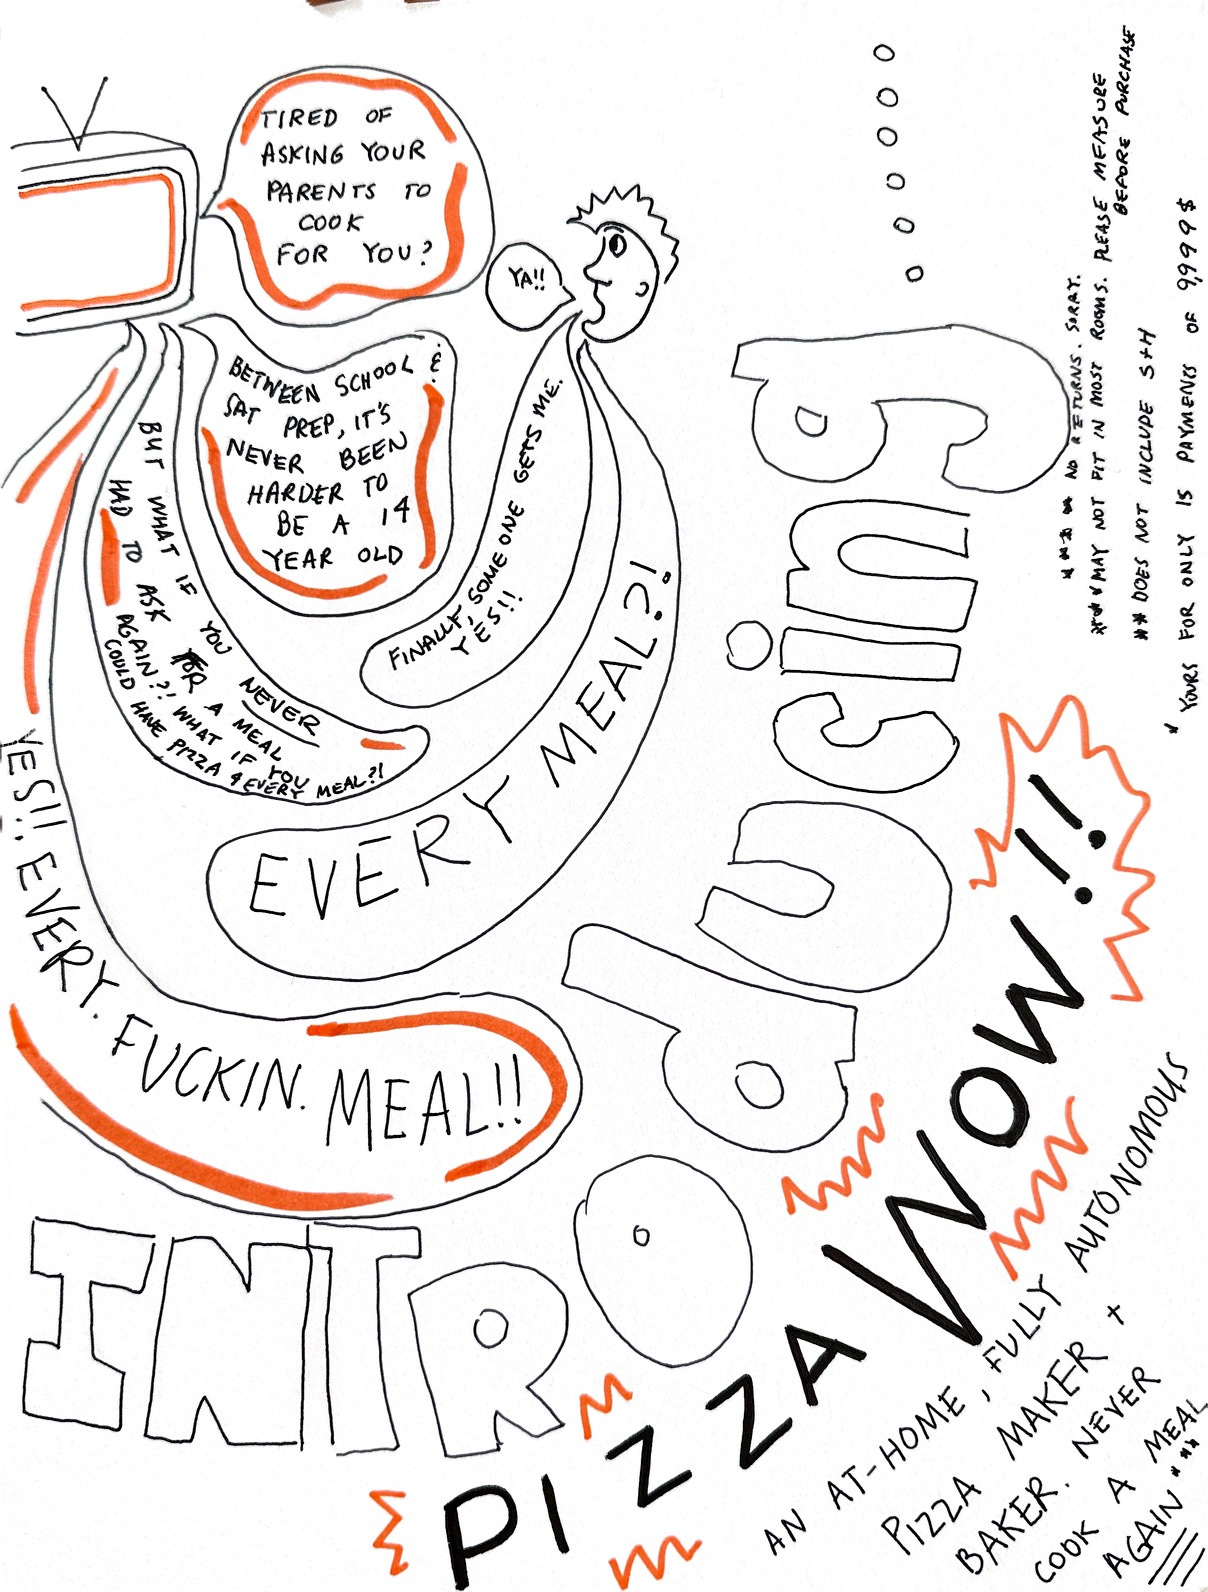 TIRED OF
ASKING YOUR
PARENTS TO
COOK
FOR YOU?
YA!!
BETWEEN SCHOOL &
SAT PREP, IT'S
NEVER BEEN
HARDER TO
BE A 14
YEAR OLD
FINALLY, SOMEONE GETS ME.
YES!!
BUT WHAT IF YOU NEVER
HAD TO ASK FOR A MEAL
AGAIN?! WHAT IF YOU
COULD HAVE PIZZA 4 EVERY MEAL?!
EVERY MEAL?!
YES!!. EVERY. FUCKIN. MEAL!!
INTRODUCING
PIZZA WOW!!!
AN AT-HOME, FULLY AUTONOMOUS
PIZZA MAKER +
BAKER. NEVER
COOK A MEAL
AGAIN * ** ***
* YOURS FOR ONLY 15 PAYMENTS OF 9,999$
** DOES NOT INCLUDE S+H
*** MAY NOT FIT IN MOST ROOMS. PLEASE MEASURE
BEFORE PURCHASE
**** NO RETURNS. SORRY.